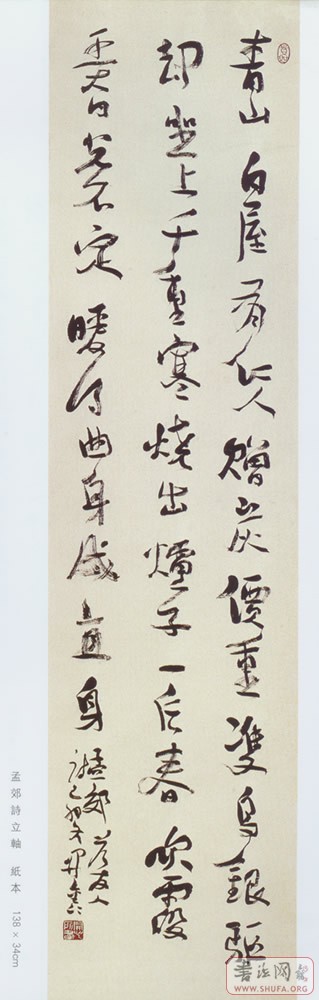 青山白屋有仁人贈炭價重雙烏銀驅
却坐上千重寒燒出爐子一片春吹霞
弄日光不定暖得曲身成直身
孟郊答友人
孟郊詩立軸 紙本 138 × 34cm
WWW.SHUFA.ORG